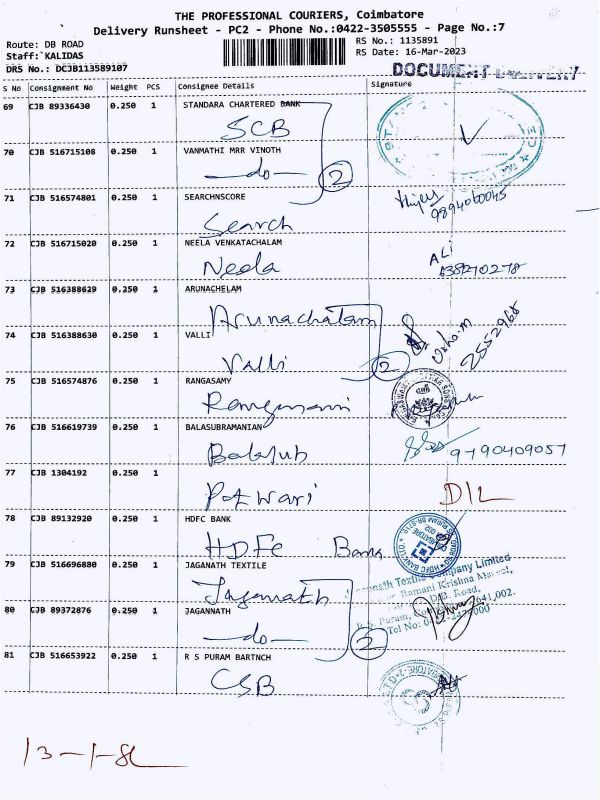 THE PROFESSIONAL COURIERS, Coimbatore
Delivery Runsheet - PC2 - Phone No.:0422-3505555 - Page No.:7
Route: DB ROAD
RS No.: 1135891
Staff: KALIDAS
RS Date: 16-Mar-2023
DRS No.: DCJB113589107
DOCUMENT DELIVERY
S No Consignment No Weight PCS Consignee Details Signature
69 CJB 89336430 0.250 1 STANDARA CHARTERED BANK
SCB
70 CJB 516715108 0.250 1 VANMATHI MRR VINOTH
-do- 2
71 CJB 516574801 0.250 1 SEARCHNSCORE
Search 9894060045
72 CJB 516715020 0.250 1 NEELA VENKATACHALAM
Neela ALI
73 CJB 516388629 0.250 1 ARUNACHELAM
Arunachalam
74 CJB 516388630 0.250 1 VALLI
Valli 2 Usha.m 2552968
75 CJB 516574876 0.250 1 RANGASAMY
76 CJB 516619739 0.250 1 BALASUBRAMANIAN
Balasub 9790409057
77 CJB 1304192 0.250 1
Potwari D/L
78 CJB 89132920 0.250 1 HDFC BANK
HDFC Bank
79 CJB 516696880 0.250 1 JAGANATH TEXTILE
Jaganath
Textile Company Limited
Ramani Krishna
D.B. Road,
80 CJB 89372876 0.250 1 JAGANNATH
-do- 2
R.S. Puram,
Tel No:
81 CJB 516653922 0.250 1 R S PURAM BARTNCH
CSB
13-1-SL